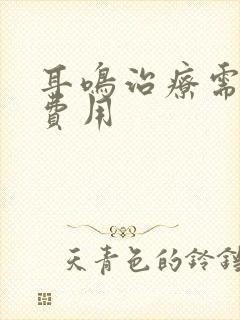 耳鳴治療需
費用
天青色的鈴鐺